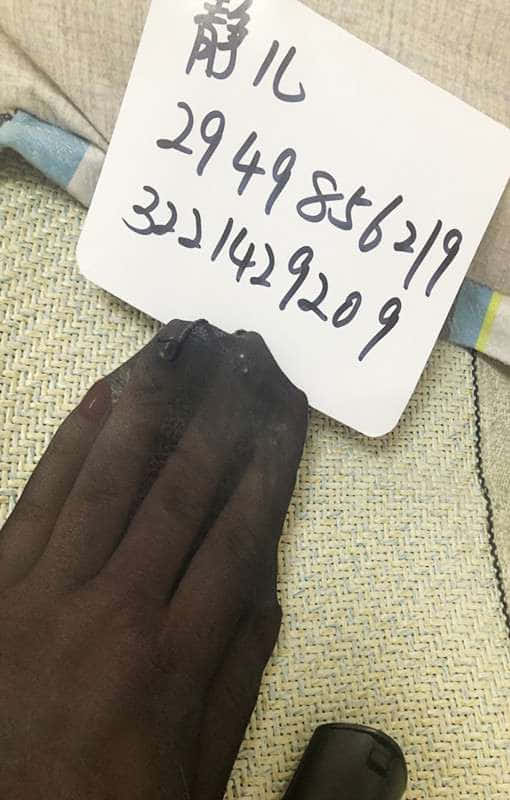 静儿
2949856219
3221429209